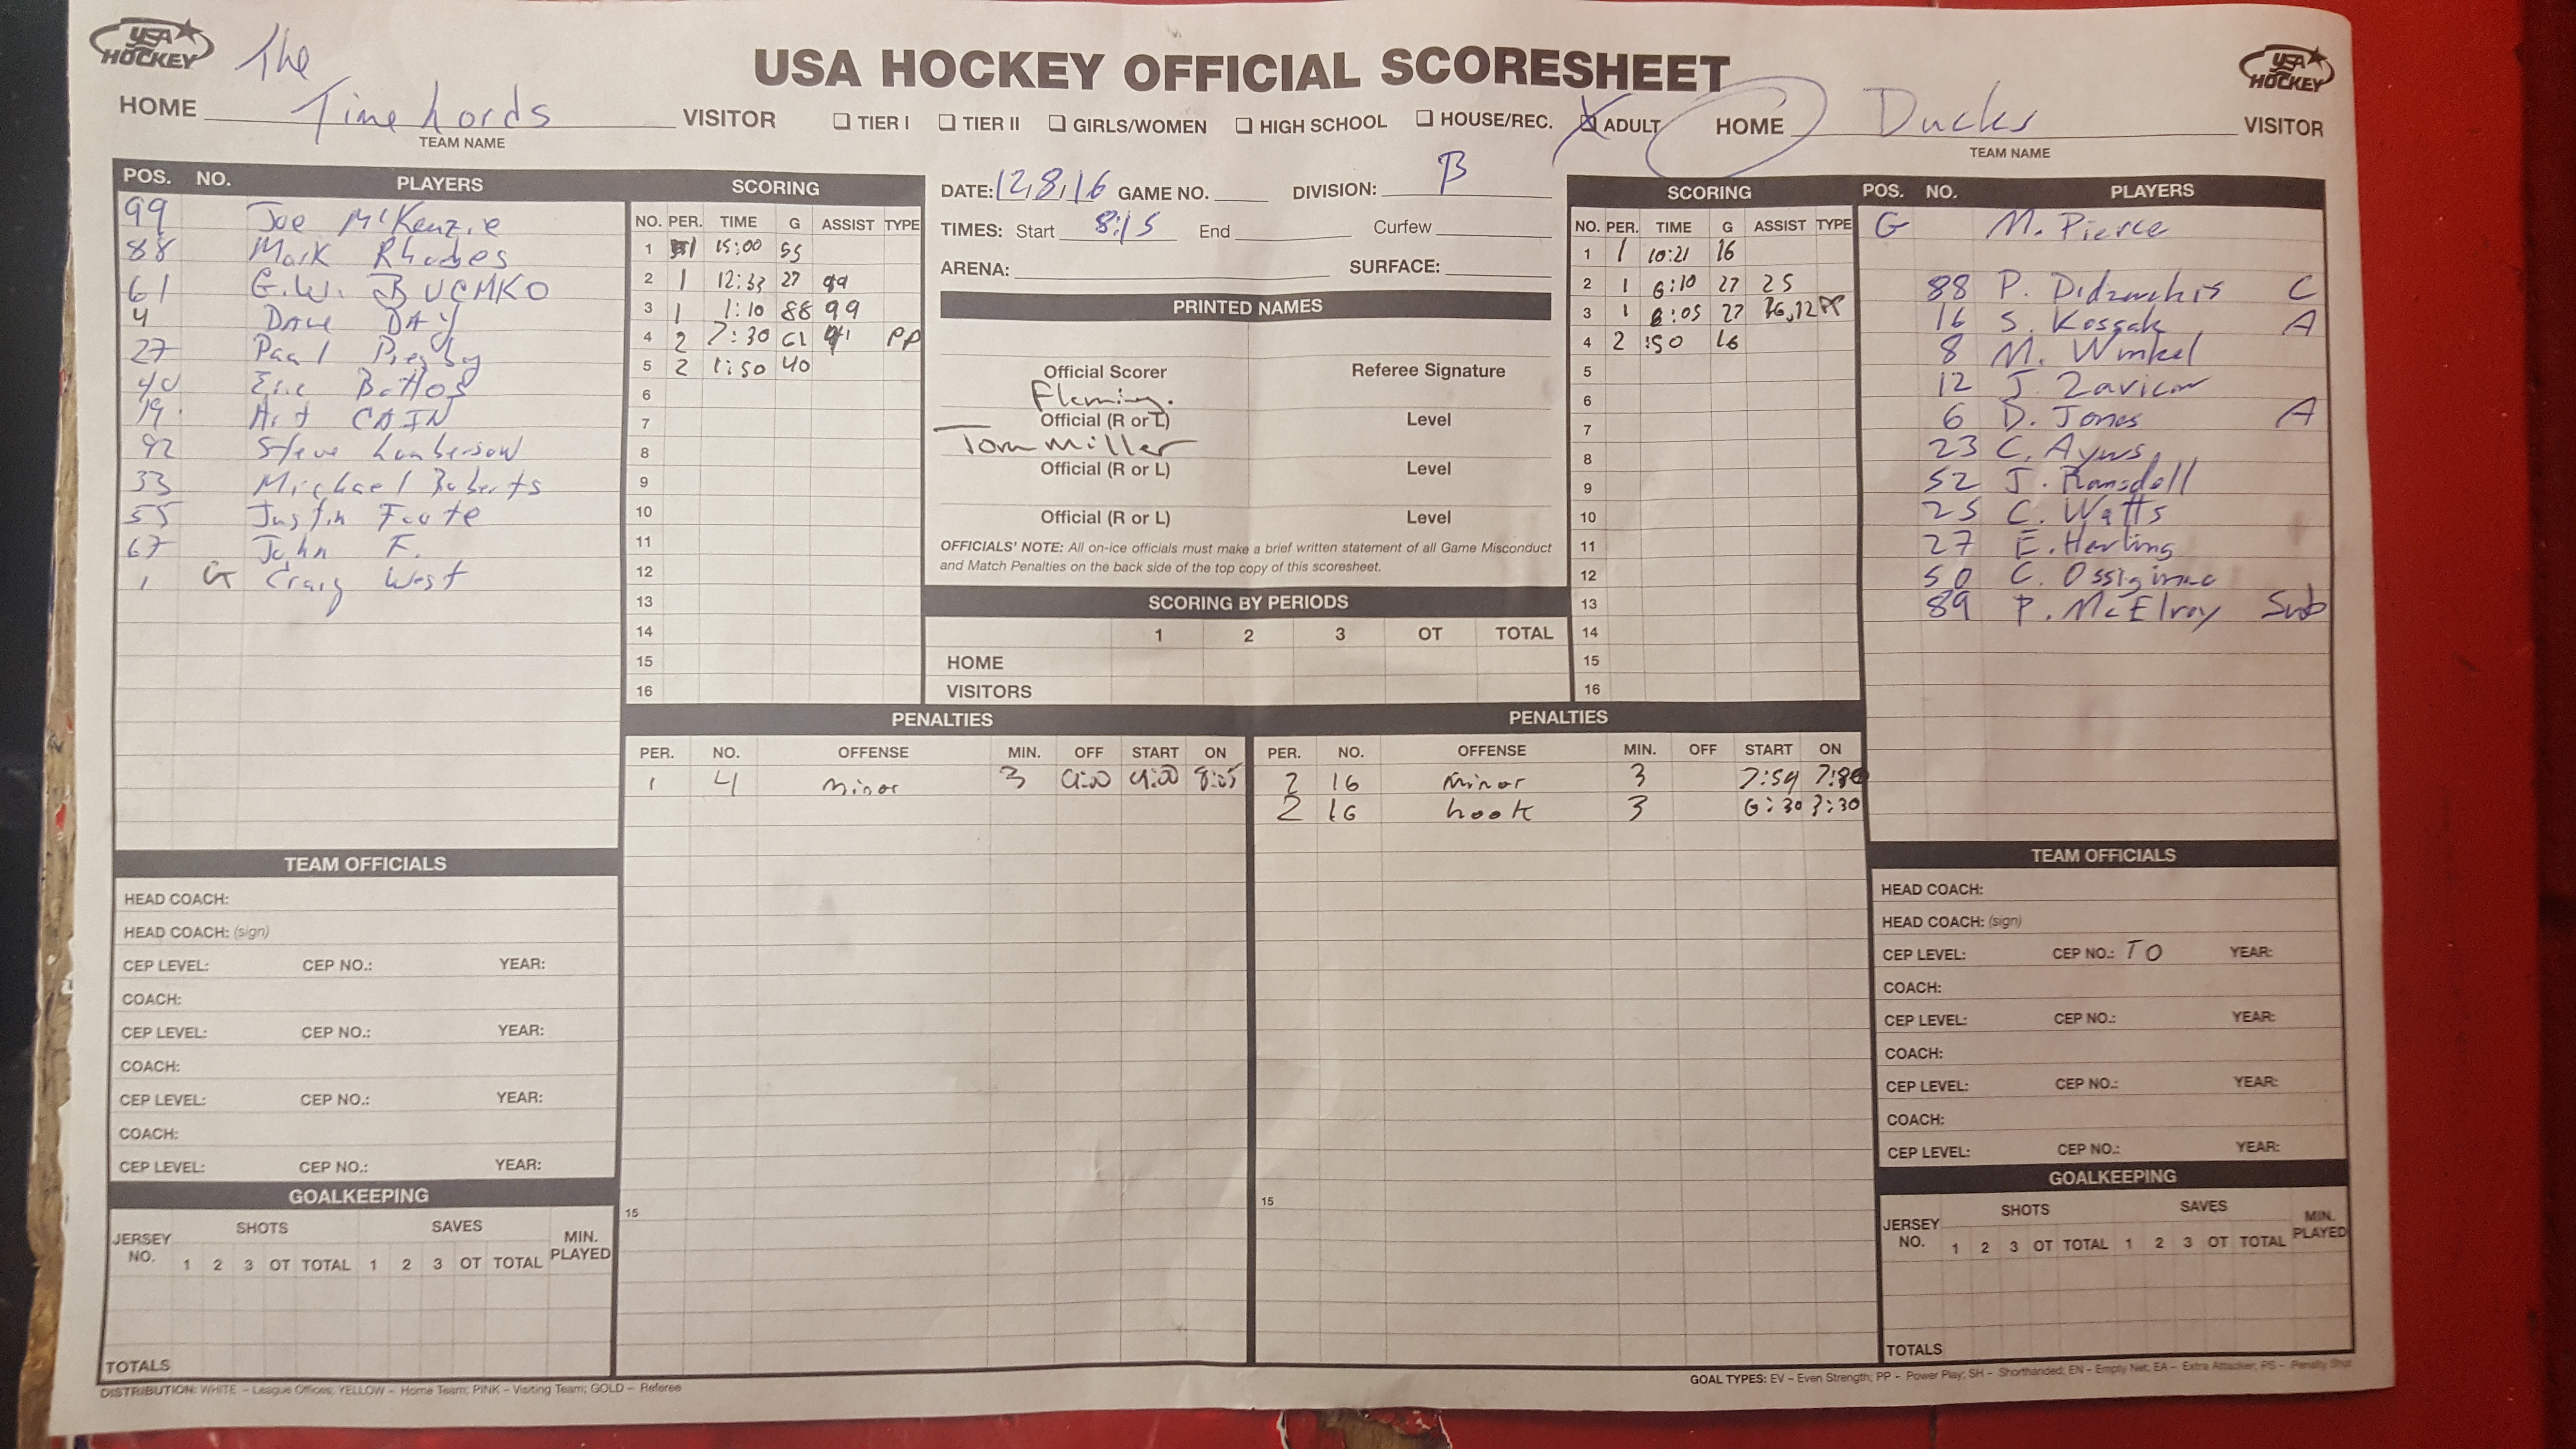 USA HOCKEY
The
USA HOCKEY OFFICIAL SCORESHEET
USA HOCKEY
HOME Time Lords VISITOR
TEAM NAME
TIER I TIER II GIRLS/WOMEN HIGH SCHOOL HOUSE/REC. X ADULT
HOME Ducks VISITOR
TEAM NAME
POS. NO. PLAYERS
99 Joe McKenzie
88 Mark Rhodes
61 G.W. BUCMKO
4 Dave DAY
27 Paul
40 Eric Bottos
19 Art CAIN
92 Steve Lamberson
33 Michael Roberts
55 Justin Foote
67 John F.
1 G Craig West
SCORING
NO. PER. TIME G ASSIST TYPE
1 1 15:00 55
2 1 12:33 27 99
3 1 1:10 88 99
4 2 7:30 61 PP
5 2 1:50 40
6
7
8
9
10
11
12
13
14
15
16
DATE: 12,8,16 GAME NO. DIVISION: B
TIMES: Start 8:15 End Curfew
ARENA: SURFACE:
PRINTED NAMES
Official Scorer Referee Signature
Fleming.
Official (R or L) Level
Tom Miller
Official (R or L) Level
Official (R or L) Level
OFFICIALS' NOTE: All on-ice officials must make a brief written statement of all Game Misconduct
and Match Penalties on the back side of the top copy of this scoresheet.
SCORING BY PERIODS
1 2 3 OT TOTAL
HOME
VISITORS
SCORING
NO. PER. TIME G ASSIST TYPE
1 1 10:21 16
2 1 6:10 27 25
3 1 8:05 27 16,12 PP
4 2 :50 16
5
6
7
8
9
10
11
12
13
14
15
16
POS. NO. PLAYERS
G M. Pierce
88 P. C
16 S. Kossak A
8 M. Winkel
12 J.
6 D. Jones A
23 C. Ayers
52 J. Ramsdell
25 C. Watts
27 E. Herling
50 C.
89 P. McElroy Sub
PENALTIES
PER. NO. OFFENSE MIN. OFF START ON
1 4 minor 3 9:00 9:00 8:05
15
PENALTIES
PER. NO. OFFENSE MIN. OFF START ON
2 16 minor 3 7:59
2 16 hook 3 6:30 3:30
15
TEAM OFFICIALS
HEAD COACH:
HEAD COACH: (sign)
CEP LEVEL: CEP NO.: YEAR:
COACH:
CEP LEVEL: CEP NO.: YEAR:
COACH:
CEP LEVEL: CEP NO.: YEAR:
COACH:
CEP LEVEL: CEP NO.: YEAR:
GOALKEEPING
JERSEY NO. SHOTS SAVES MIN. PLAYED
1 2 3 OT TOTAL 1 2 3 OT TOTAL
TOTALS
TEAM OFFICIALS
HEAD COACH:
HEAD COACH: (sign)
CEP LEVEL: CEP NO.: TO YEAR:
COACH:
CEP LEVEL: CEP NO.: YEAR:
COACH:
CEP LEVEL: CEP NO.: YEAR:
COACH:
CEP LEVEL: CEP NO.: YEAR:
GOALKEEPING
JERSEY NO. SHOTS SAVES MIN. PLAYED
1 2 3 OT TOTAL 1 2 3 OT TOTAL
TOTALS
DISTRIBUTION: WHITE – League Offices; YELLOW – Home Team; PINK – Visiting Team; GOLD – Referee
GOAL TYPES: EV – Even Strength; PP – Power Play; SH – Shorthanded; EN – Empty Net; EA – Extra Attacker; PS – Penalty Shot